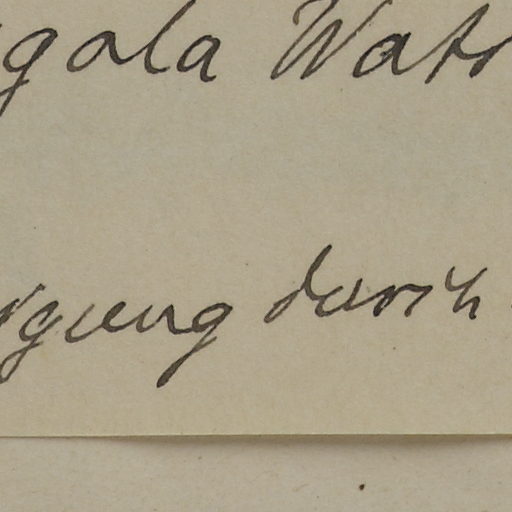 gala Wats
gung durch